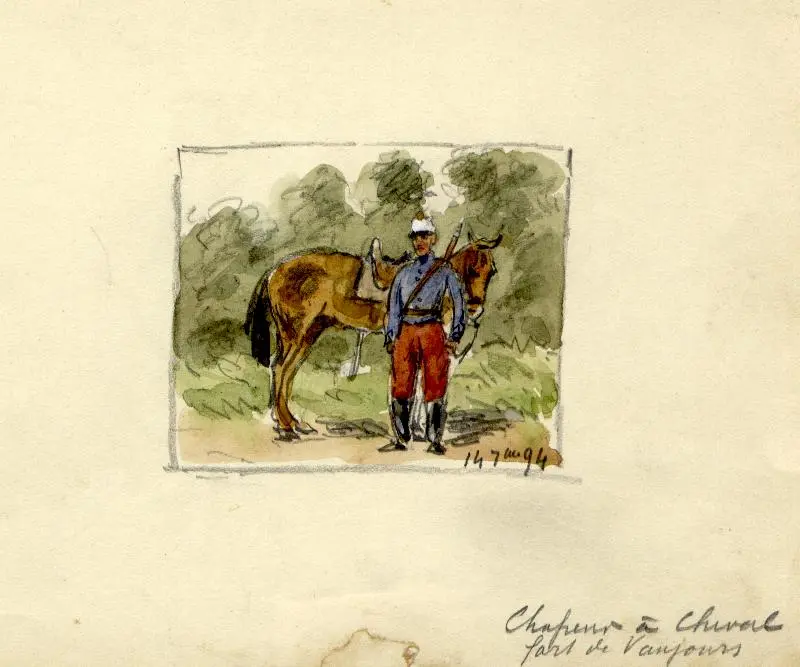 14 7bre 94
Chasseur à Cheval
fort de Vaujours